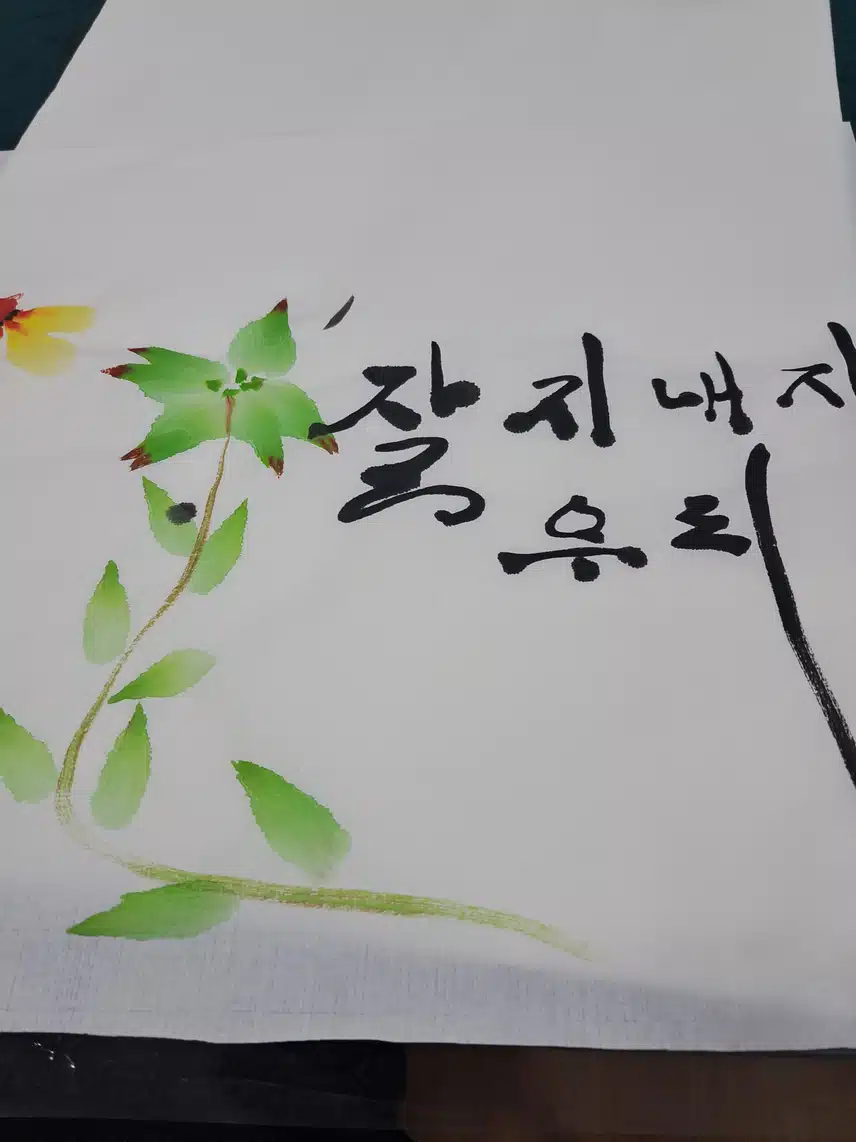 잘 지내자
우리